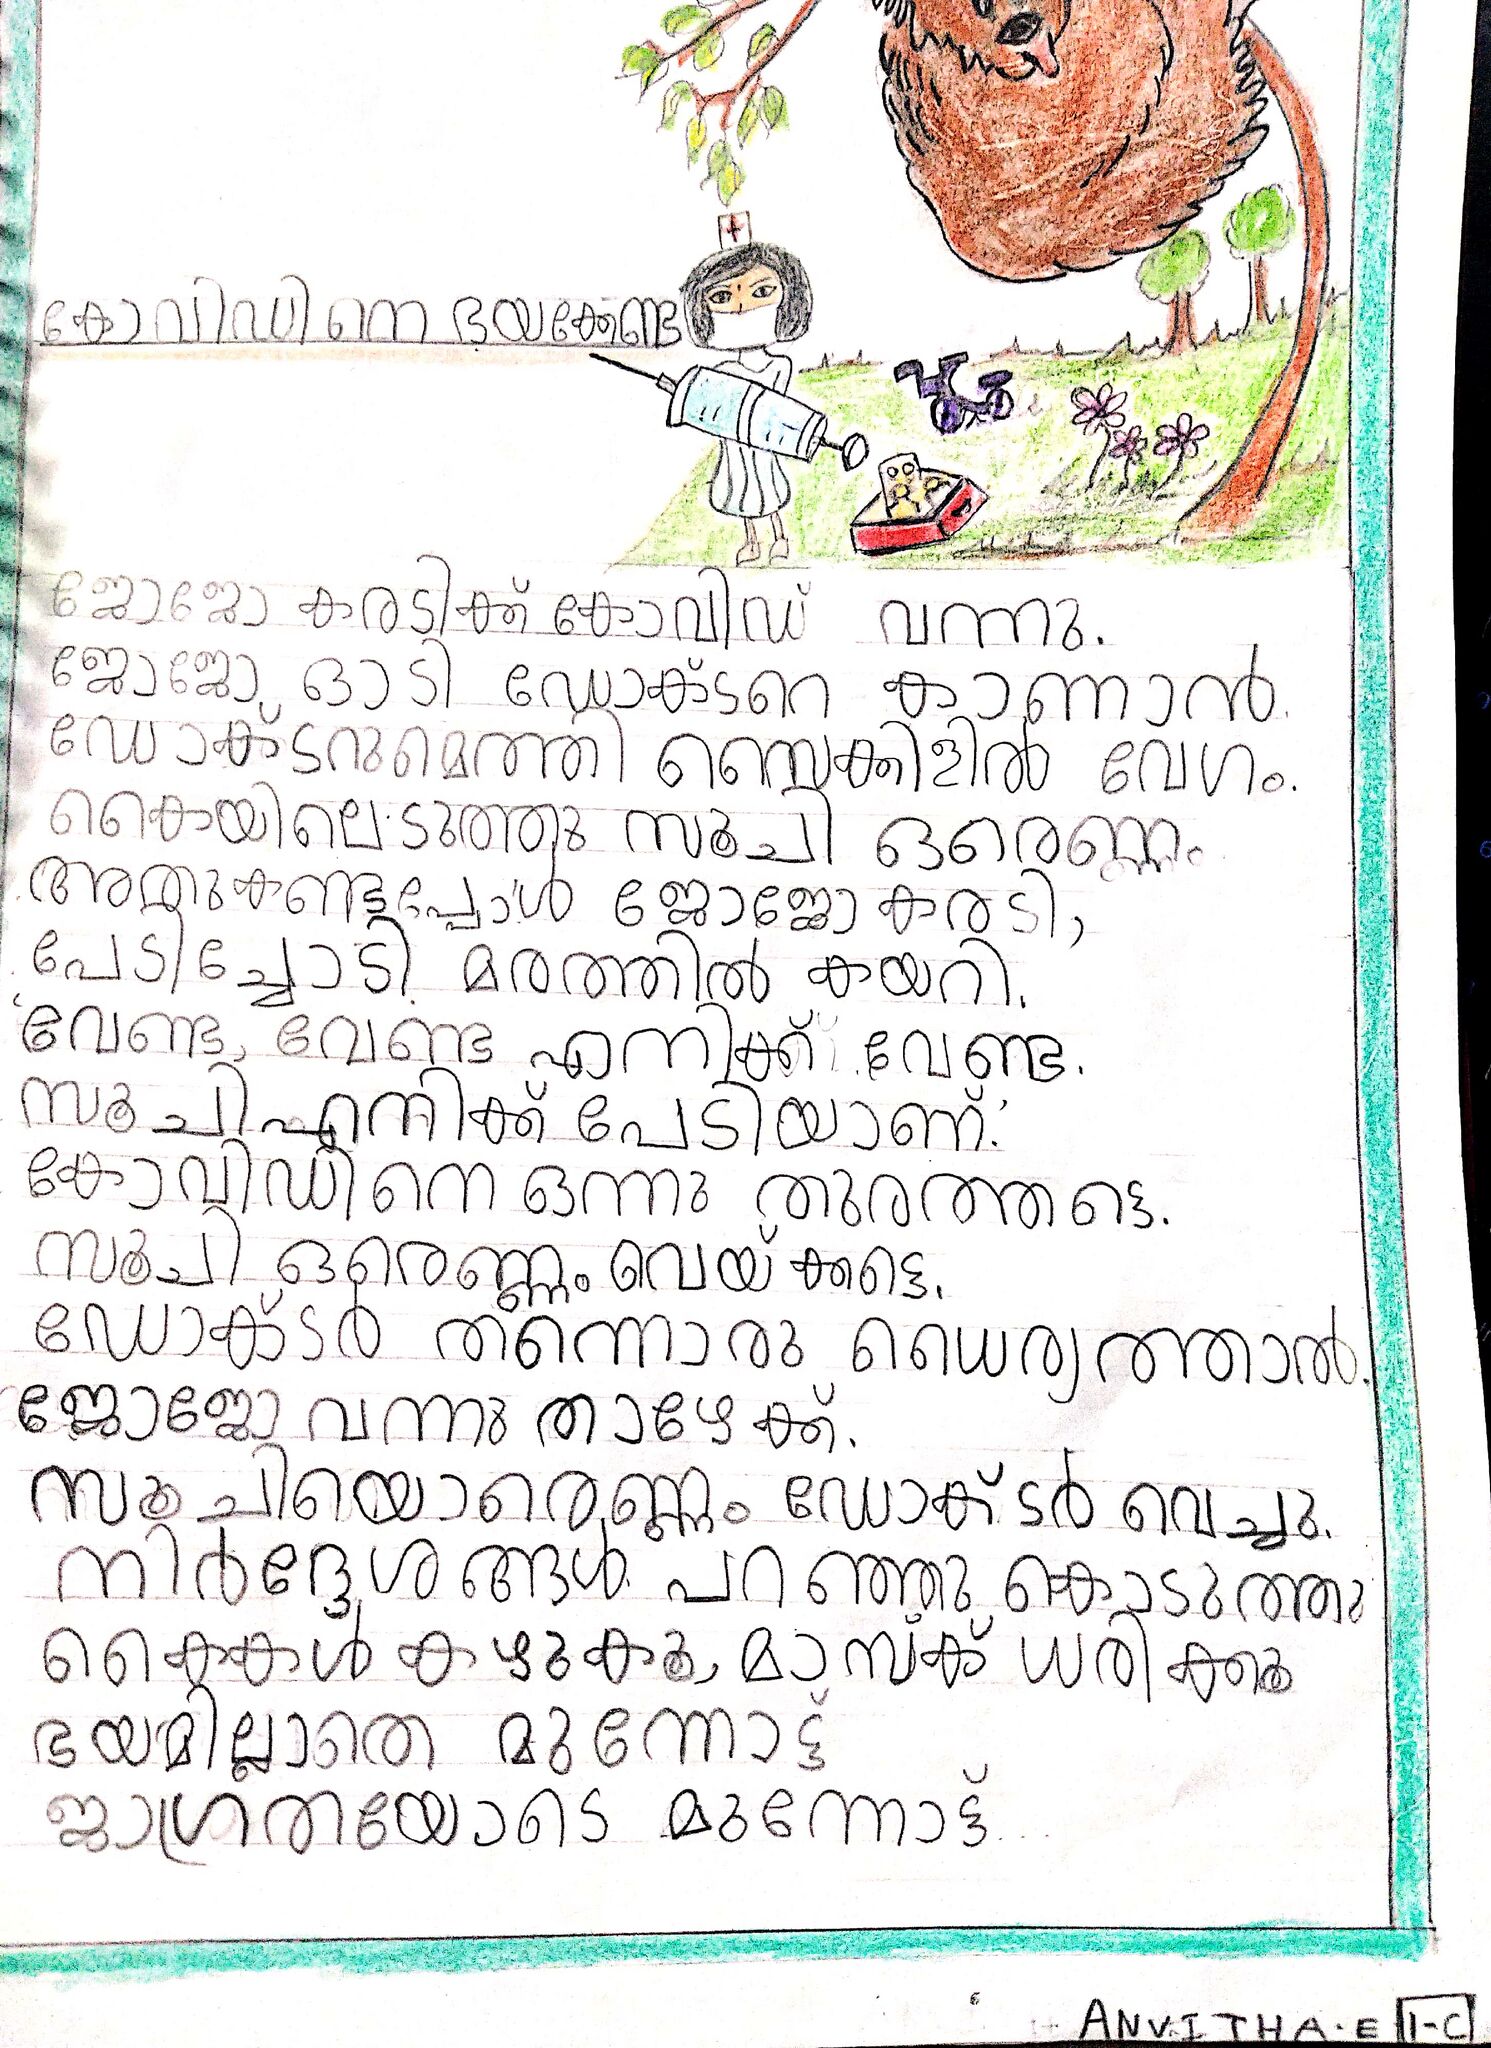 കോവിഡിനെ ഭയക്കേണ്ട
ജോജോ കരടിക്ക് കോവിഡ് വന്നു.
ജോജോ ഓടി ഡോക്ടറെ കാണാൻ.
ഡോക്ടറുമെത്തി സൈക്കിളിൽ വേഗം.
കൈയിലെടുത്തു സൂചി ഒരെണ്ണം
അതുകണ്ടപ്പോൾ ജോജോ കരടി,
പേടിച്ചോടി മരത്തിൽ കയറി.
'വേണ്ട, വേണ്ട എനിക്ക് വേണ്ട.
സൂചി എനിക്ക് പേടിയാണ്.'
കോവിഡിനെ ഒന്നു തുരത്തട്ടെ.
സൂചി ഒരെണ്ണം വെയ്ക്കട്ടെ.
ഡോക്ടർ തന്നൊരു ധൈര്യത്താൽ.
ജോജോ വന്നു താഴേക്ക്.
സൂചിയൊരെണ്ണം ഡോക്ടർ വെച്ചു.
നിർദ്ദേശങ്ങൾ പറഞ്ഞു കൊടുത്തു
കൈകൾ കഴുകൂ, മാസ്ക് ധരിക്കൂ
ഭയമില്ലാതെ മുന്നോട്ട്
ജാഗ്രതയോടെ മുന്നോട്ട്...
ANVITHA.E 1-C